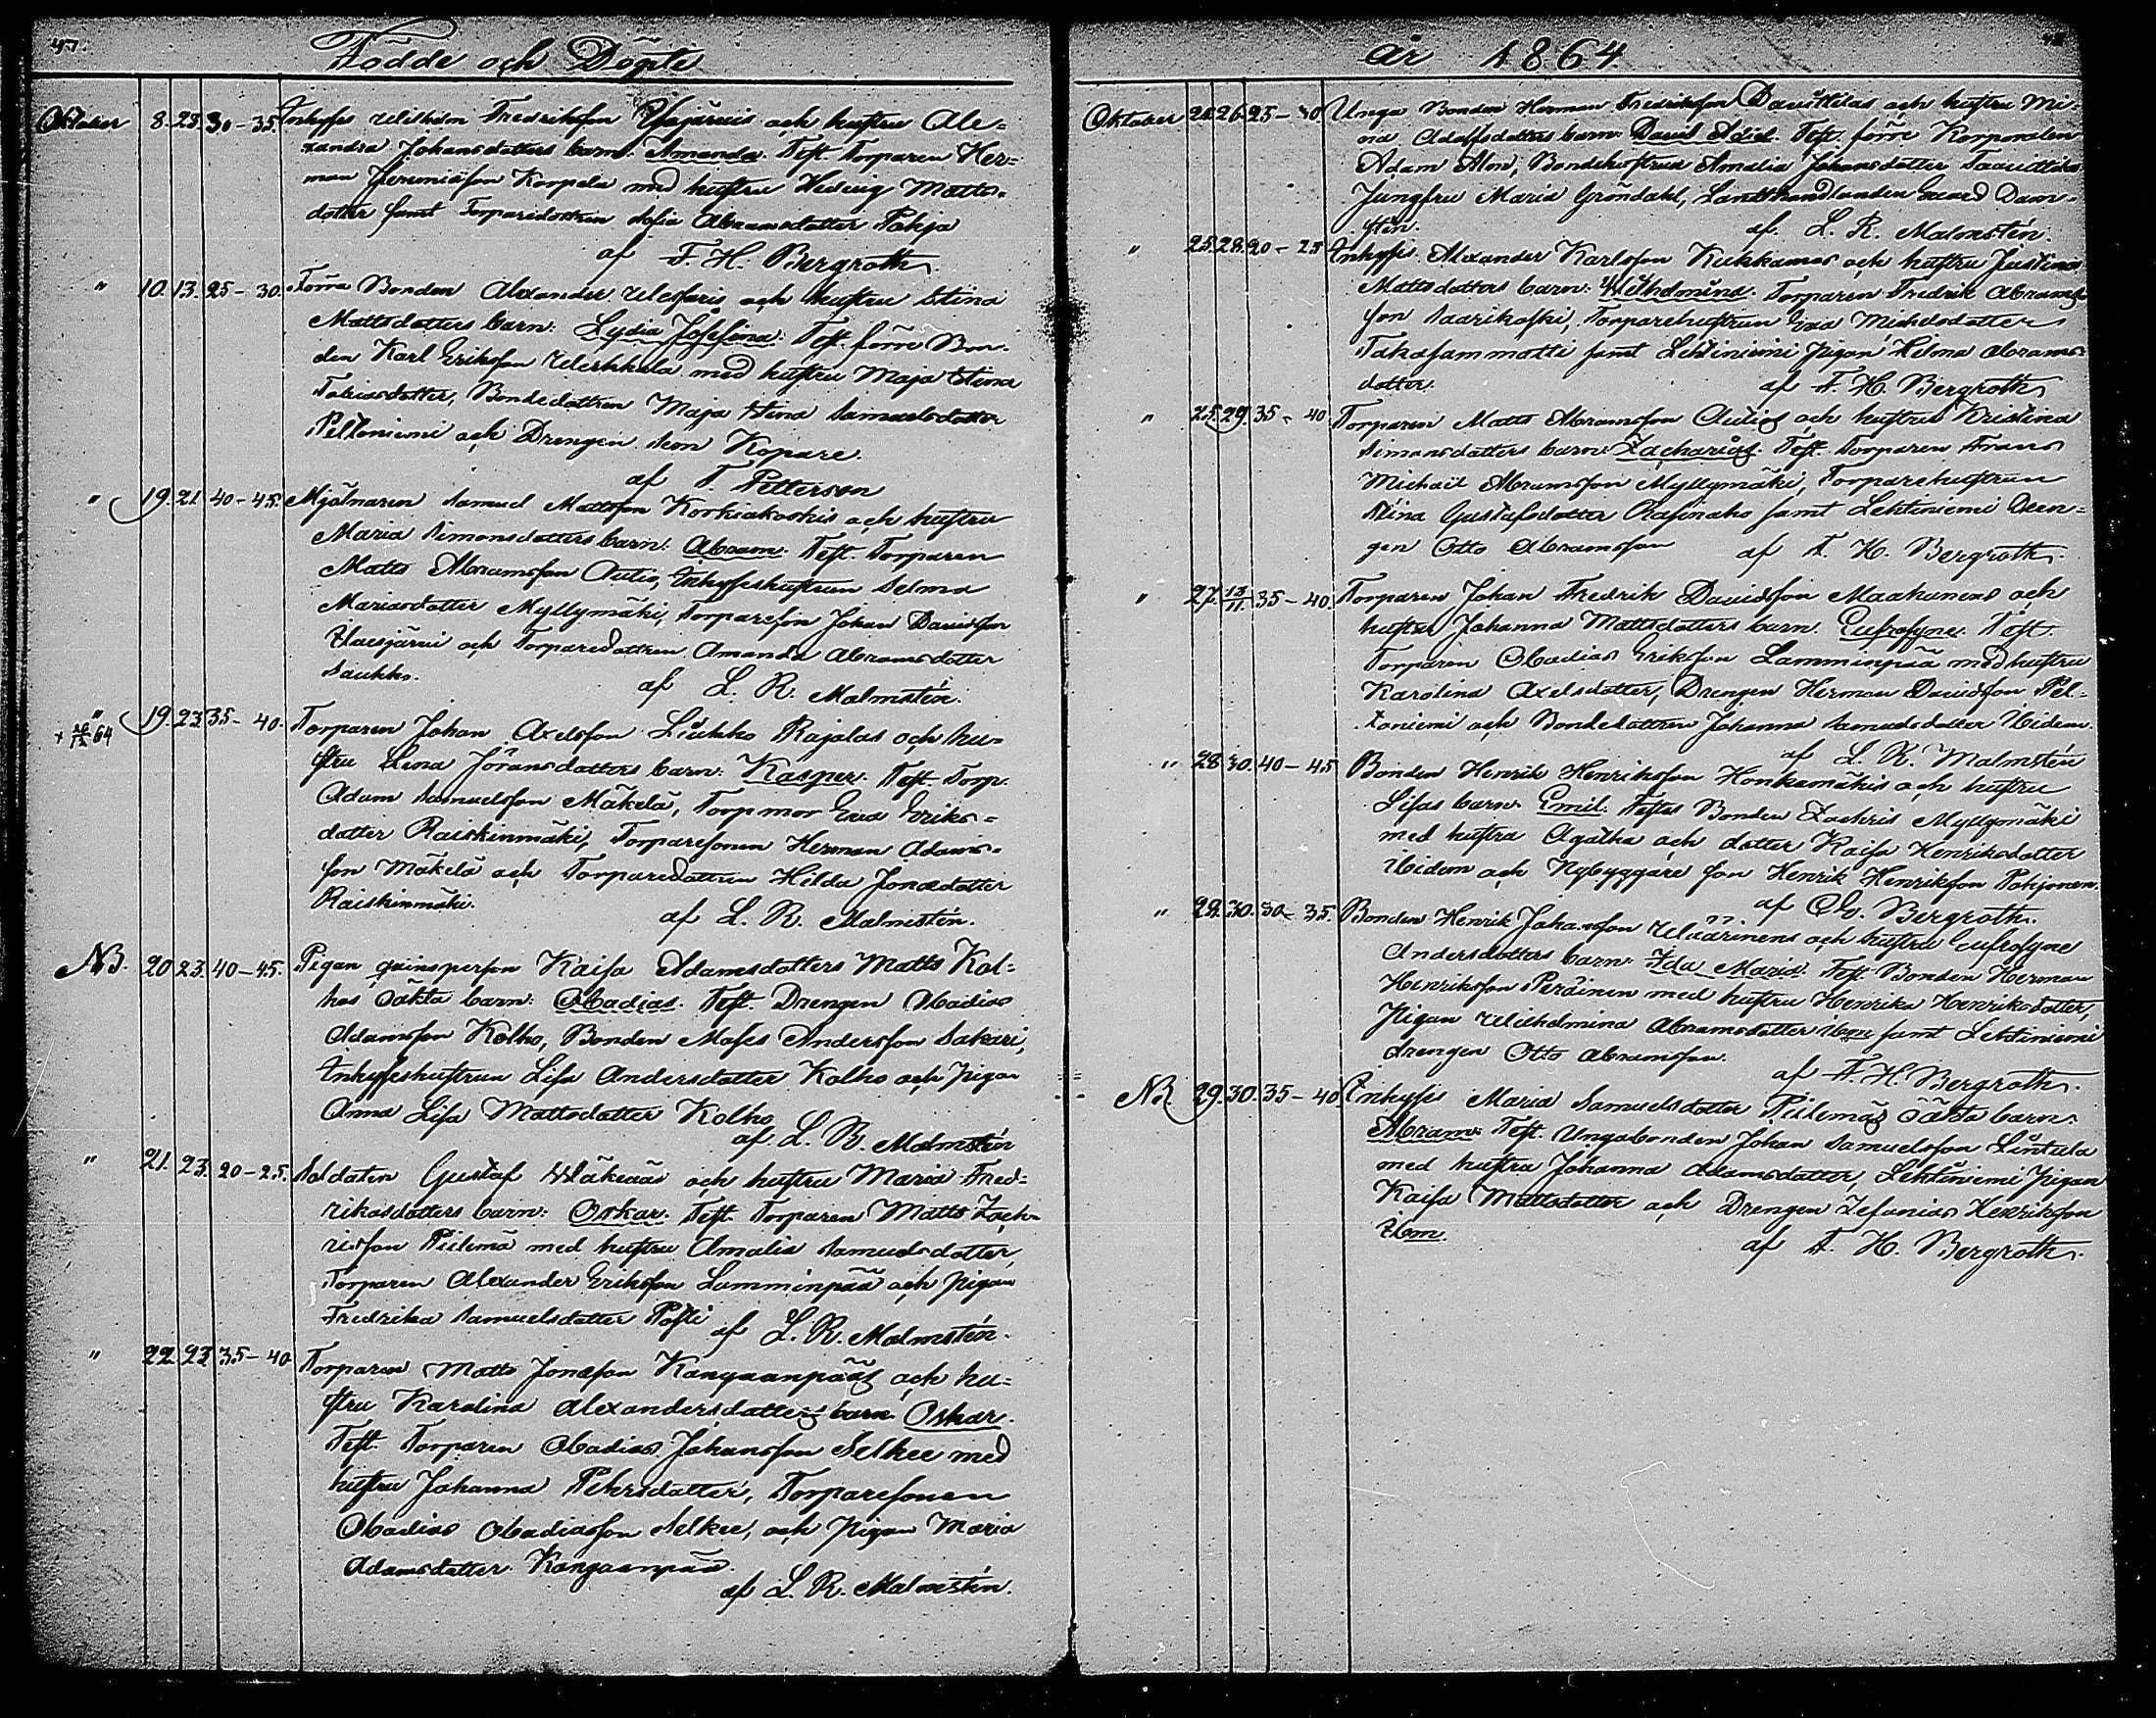 47.
Födde och Döpte
Oktober 8. 23. 30-35. Inhyses Wilhelm Fredriksson Ylisjärvis och hustru Ale=
xandra Johansdotters barn: Amanda. Test. Torparen Her=
man Jeremiasson Korpela med hustru Hedvig Matts=
dotter samt Torparedottren Sofia Abramsdotter Pohja
af F. H. Bergroth.
" 10. 13. 25-30. Förra Bonden Alexander och hustru Stina
Mattsdotters barn: Lydia Josefina. Test. förre Bon=
den Karl Eriksson med hustru Maja Stina
Tobiasdotter, Bondedottren Maja Stina Samuelsdotter
Peltoniemi och Drengen Kopare.
af T Petterson
" 19. 21. 40-45. Mjölnaren Samuel Mattsson Korkiakoskis och hustru
Maria Simonsdotters barn: Abram. Test. Torparen
Matts Abramsson Autio, Inhyseshustrun Selma
Mariasdotter Myllymäki, Torpareson Johan Davidsson
och Torparedottren Amanda Abramsdotter
Saukko.
af L. R. Malmstén.
" 19. 23. 35-40. Torparen Johan Axelsson Liukko Rajalas och hu=
stru Lena Jöransdotters barn: Kasper. Test. Torp.
Adam Samuelsson Mäkelä, Torpmor Eva Eriks=
dotter Raiskinmäki, Torparesonen Herman Adams=
son Mäkelä och Torparedottren Hilda Jonasdotter
Raiskinmäki.
af L. R. Malmstén.
NB. 20 23. 40-45. Pigan qvinsperson Kaisa Adamsdotters Matts Kol=
hos oäkta barn: Obadias. Test. Drengen Obadias
Adamsson Kolho, Bonden Moses Andersson Sakari,
Inhyseshustrun Lisa Andersdotter Kolho och pigan
Anna Lisa Mattsdotter Kolho
af L. R. Malmstén
" 21. 23. 20-25. Soldaten Gustaf Wäkeväs och hustru Maria Fred=
riksdotters barn: Oskar. Test. Torparen Matts Zach=
risson Piilemä med hustru Amalia Samuelsdotter,
Torparen Alexander Eriksson Lamminpää och pigan
Fredrika Samuelsdotter
af L. R. Malmstén.
" 22. 23 35-40. Torparen Matts Jonasson Kangaanpääs och hu=
stru Karolina Alexandersdotters barn Oskar.
Test. Torparen Obadias Johansson Selkee med
hustru Johanna Pehrsdotter, Torparesonen
Obadias Obadiasson Selkee, och pigan Maria
Adamsdotter Kangaanpää.
af L. R. Malmstén.
år 1864
Oktober 26. 25-30 Unga Bonden Herman Fredriksson och hustru Mi=
na Adolfsdotters barn: David Test. förre Korporalen
Adam Alm, Bondehustrun Amalia Johansdotter
Jungfru Maria Gröndahl, Landthandlanden Dam=
sten.
af L. R. Malmstén.
" 25. 28. 20-25 Inhyses Alexander Karlsson Kukkamas och hustru Justina
Mattsdotters barn: Wilhelmina. Torparen Fredrik Abrams=
son Saarikoski, Torparehustrun Eva Michelsdotter
Takasammatti samt Lehtiniemi pigan Helena Abrams=
dotter.
af F. H. Bergroth
" 25. 29. 35-40 Torparen Matts Abramsson Autios och hustru Kristina
Simonsdotters barn: Zacharias. Test. Torparen Frans
Michail Abramsson Myllymäki, Torparehustrun
Stina Gustafsdotter samt Lehtiniemi Dren=
gen Otto Abramsson
af F. H. Bergroth.
" 27. 13/11. 35-40. Torparen Johan Fredrik Davidsson Maahanens och
hustru Johanna Mattsdotters barn. Eufrosyne. Test.
Torparen Obadias Eriksson Lamminpää med hustru
Karolina Axelsdotter, Drengen Herman Davidsson Pel=
toniemi och Bondedottren Johanna Samuelsdotter ibidem
af L. R. Malmstén
" 28. 30. 40-45 Bonden Henrik Henriksson Honkamäkis och hustru
Lisas barn: Emil. Test. Bonden Zachris Myllymäki
med hustru Agatha och dotter Kaisa Henriksdotter
ibidem och Nybyggare son Henrik Henriksson Pohjonen.
af Bergroth.
" 29. 30. 30-35. Bonden Henrik Johansson Wäärinens och hustru Eufrosyne
Andersdotters barn: Ida Maria. Test. Bonden Herman
Henriksson Peräinen med hustru Henrika Henriksdotter,
Pigan Wilhelmina Abramsdotter samt Lehtiniemi
drengen Otto Abramsson.
af F. H. Bergroth.
NB. 29. 30. 35-40. Inhyses Maria Samuelsdotter Piilemäs oäkta barn:
Abram. Test. Ungabonden Johan Samuelsson Lintula
med hustru Johanna Adamsdotter, Lehtiniemi pigan
Kaisa Mattsdotter och Drengen Zefanias Henriksson
af F. H. Bergroth.